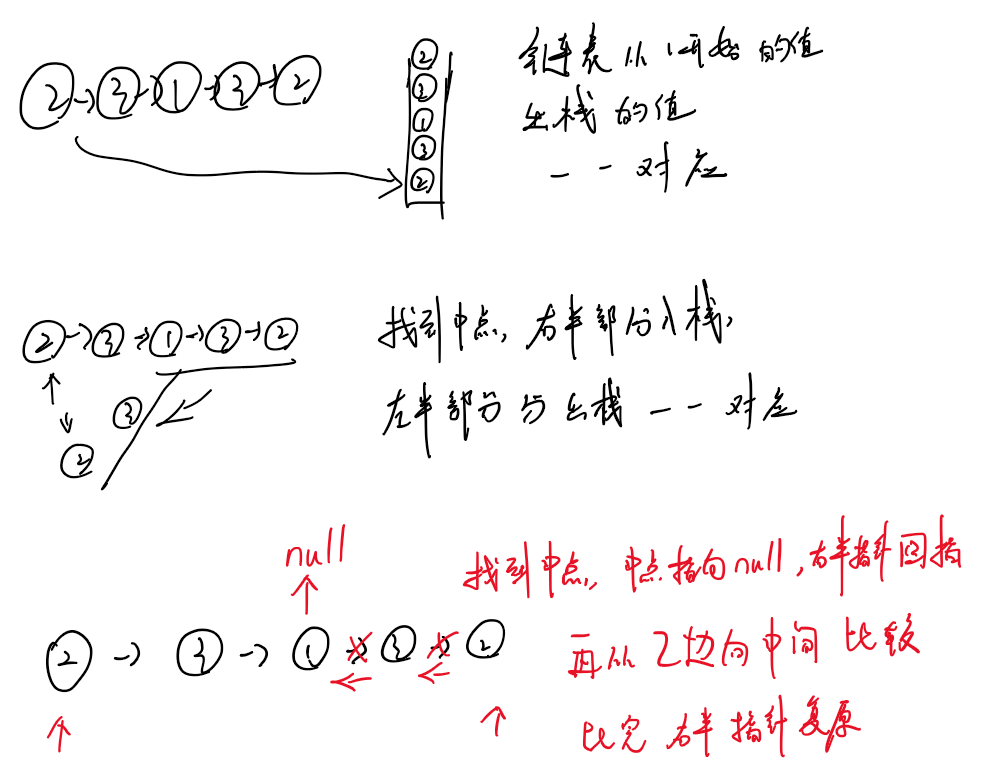 2 → 3 → 1 → 3 → 2
2
3
1
3
2
链表从开始的值
出栈的值
一一对应
2 → 3 → 1 → 3 → 2
3
2
找到中点，右半部分入栈，
左半部分与出栈一一对应
null
2 → 3 → 1 3 2
找到中点，中点指向null，右半指针回指
再从2边向中间比较
比完右半指针复原